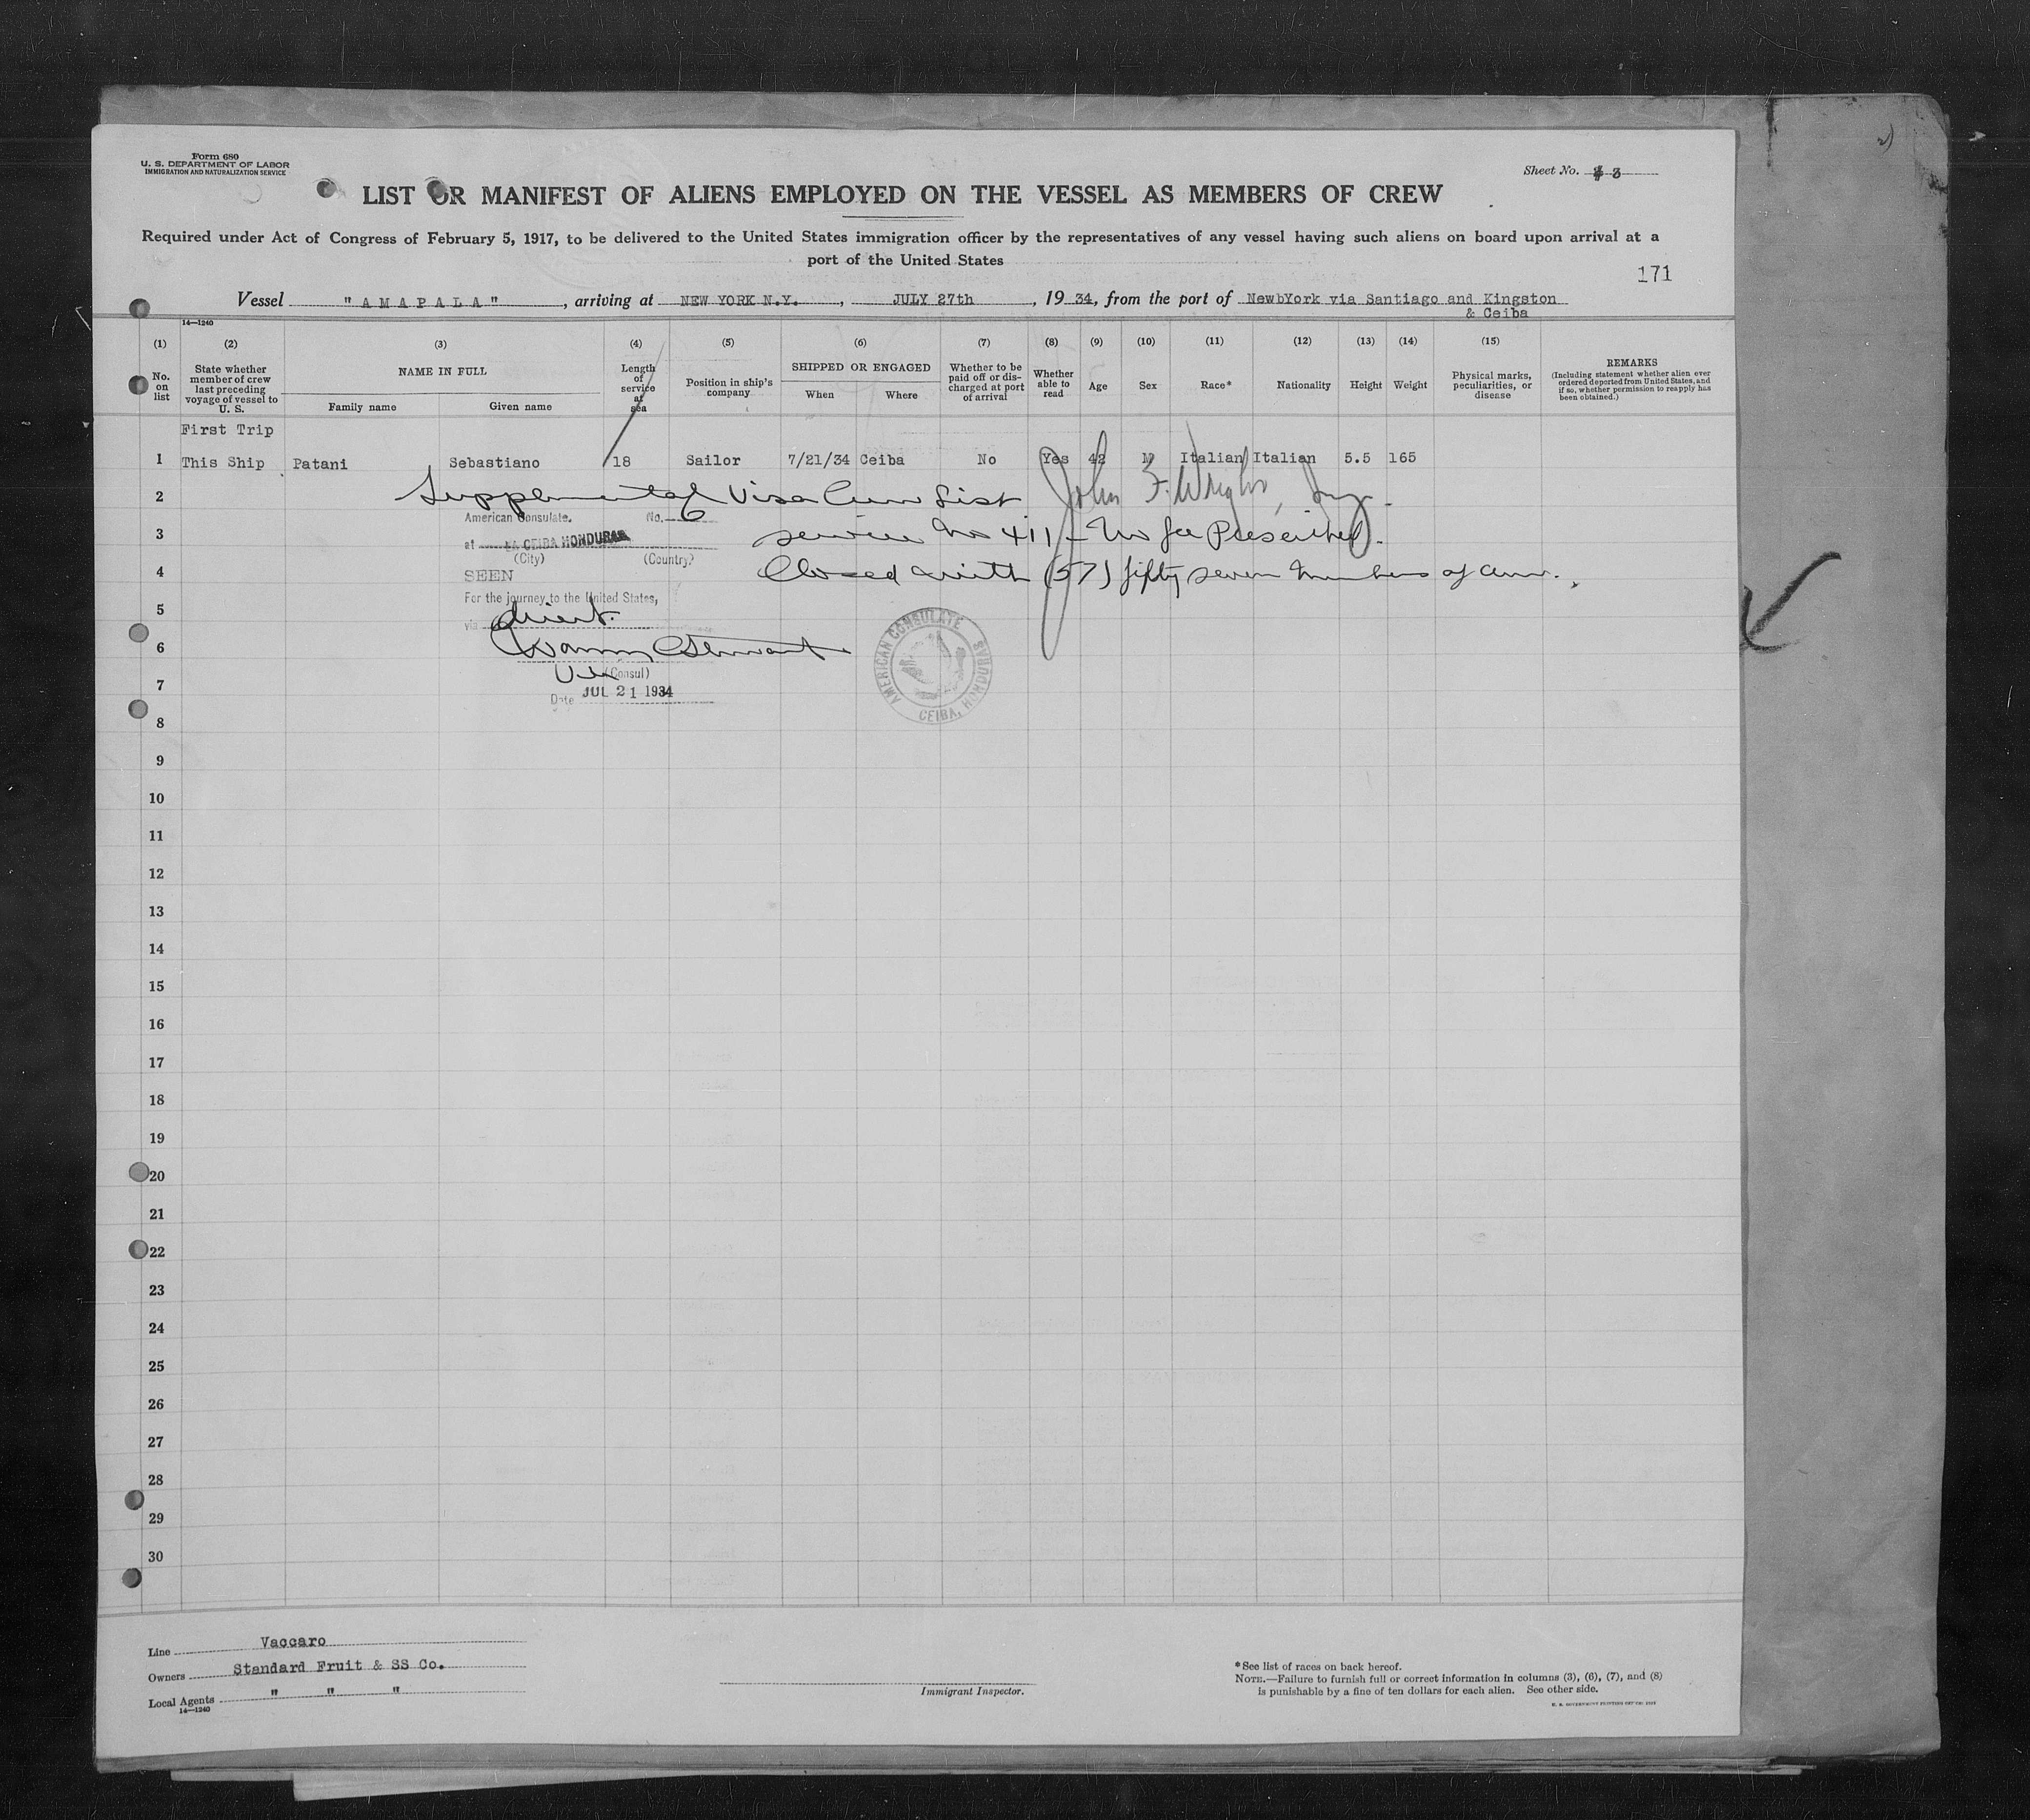 Form 680
U. S. DEPARTMENT OF LABOR
IMMIGRATION AND NATURALIZATION SERVICE
Sheet No. 3
LIST OR MANIFEST OF ALIENS EMPLOYED ON THE VESSEL AS MEMBERS OF CREW
Required under Act of Congress of February 5, 1917, to be delivered to the United States immigration officer by the representatives of any vessel having such aliens on board upon arrival at a
port of the United States
171
Vessel "AMAPALA", arriving at NEW YORK N.Y., JULY 27th, 1934, from the port of NewbYork via Santiago and Kingston
& Ceiba
14—1240
(1) (2) (3) (4) (5) (6) (7) (8) (9) (10) (11) (12) (13) (14) (15)
No. on list
State whether member of crew last preceding voyage of vessel to U. S.
NAME IN FULL
Family name Given name
Length of service at sea
Position in ship's company
SHIPPED OR ENGAGED
When Where
Whether to be paid off or discharged at port of arrival
Whether able to read
Age
Sex
Race*
Nationality
Height
Weight
Physical marks, peculiarities, or disease
REMARKS
(Including statement whether alien ever ordered deported from United States, and if so, whether permission to reapply has been obtained.)
First Trip
1 This Ship Patani Sebastiano 18 Sailor 7/21/34 Ceiba No Yes 42 M Italian Italian 5.5 165
2 Supplemental Visa Crew List John F. Wright, Insp.
American Consulate. No. 6
3 service No 411 - No fee Prescribed.
at LA CEIBA HONDURAS
(City) (Country)
4 Closed with (57) fifty seven members of crew.
SEEN
For the journey to the United States,
5
via direct.
6 Stewart
Vice (Consul)
7
Date JUL 21 1934
AMERICAN CONSULATE
CEIBA, HONDURAS
8
9
10
11
12
13
14
15
16
17
18
19
20
21
22
23
24
25
26
27
28
29
30
Line Vaccaro
Owners Standard Fruit & SS Co.
Local Agents " " "
14—1240
Immigrant Inspector.
*See list of races on back hereof.
NOTE.—Failure to furnish full or correct information in columns (3), (6), (7), and (8)
is punishable by a fine of ten dollars for each alien. See other side.